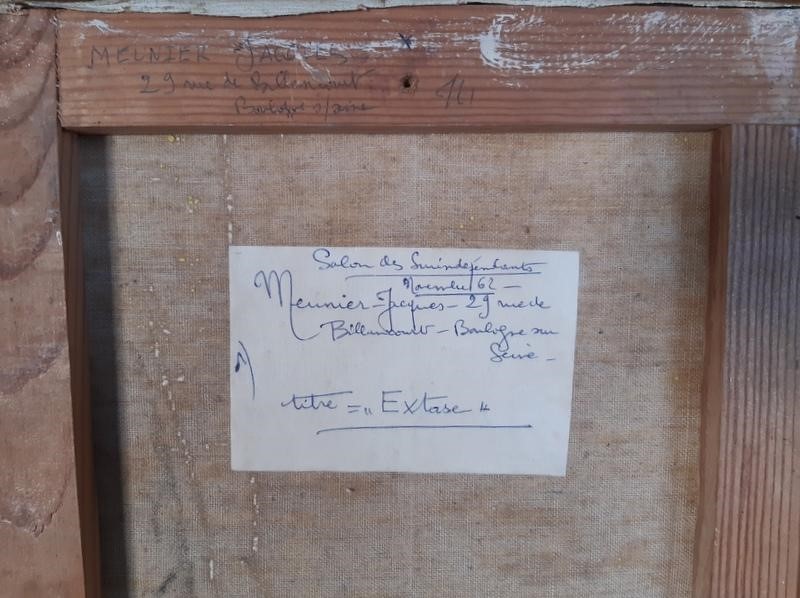 MEUNIER JACQUES
29 rue de Billancourt
Boulogne s/seine
Salon des Surindépendants
Novembre 62 -
Meunier - Jacques - 29 rue de
Billancourt - Boulogne sur
Seine -
titre = „ Extase "